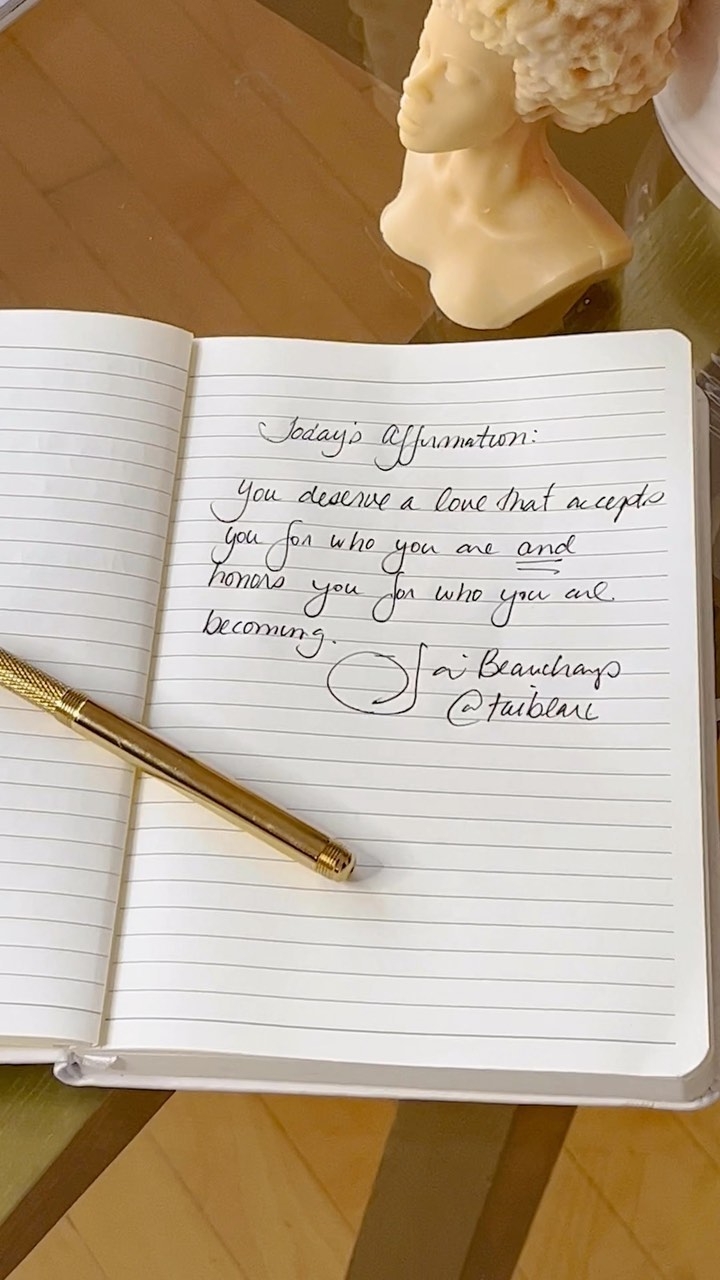 Today's Affirmation:
you deserve a love that accepts
you for who you are and
honors you for who you are
becoming.
Tai Beauchamp
@taibeau